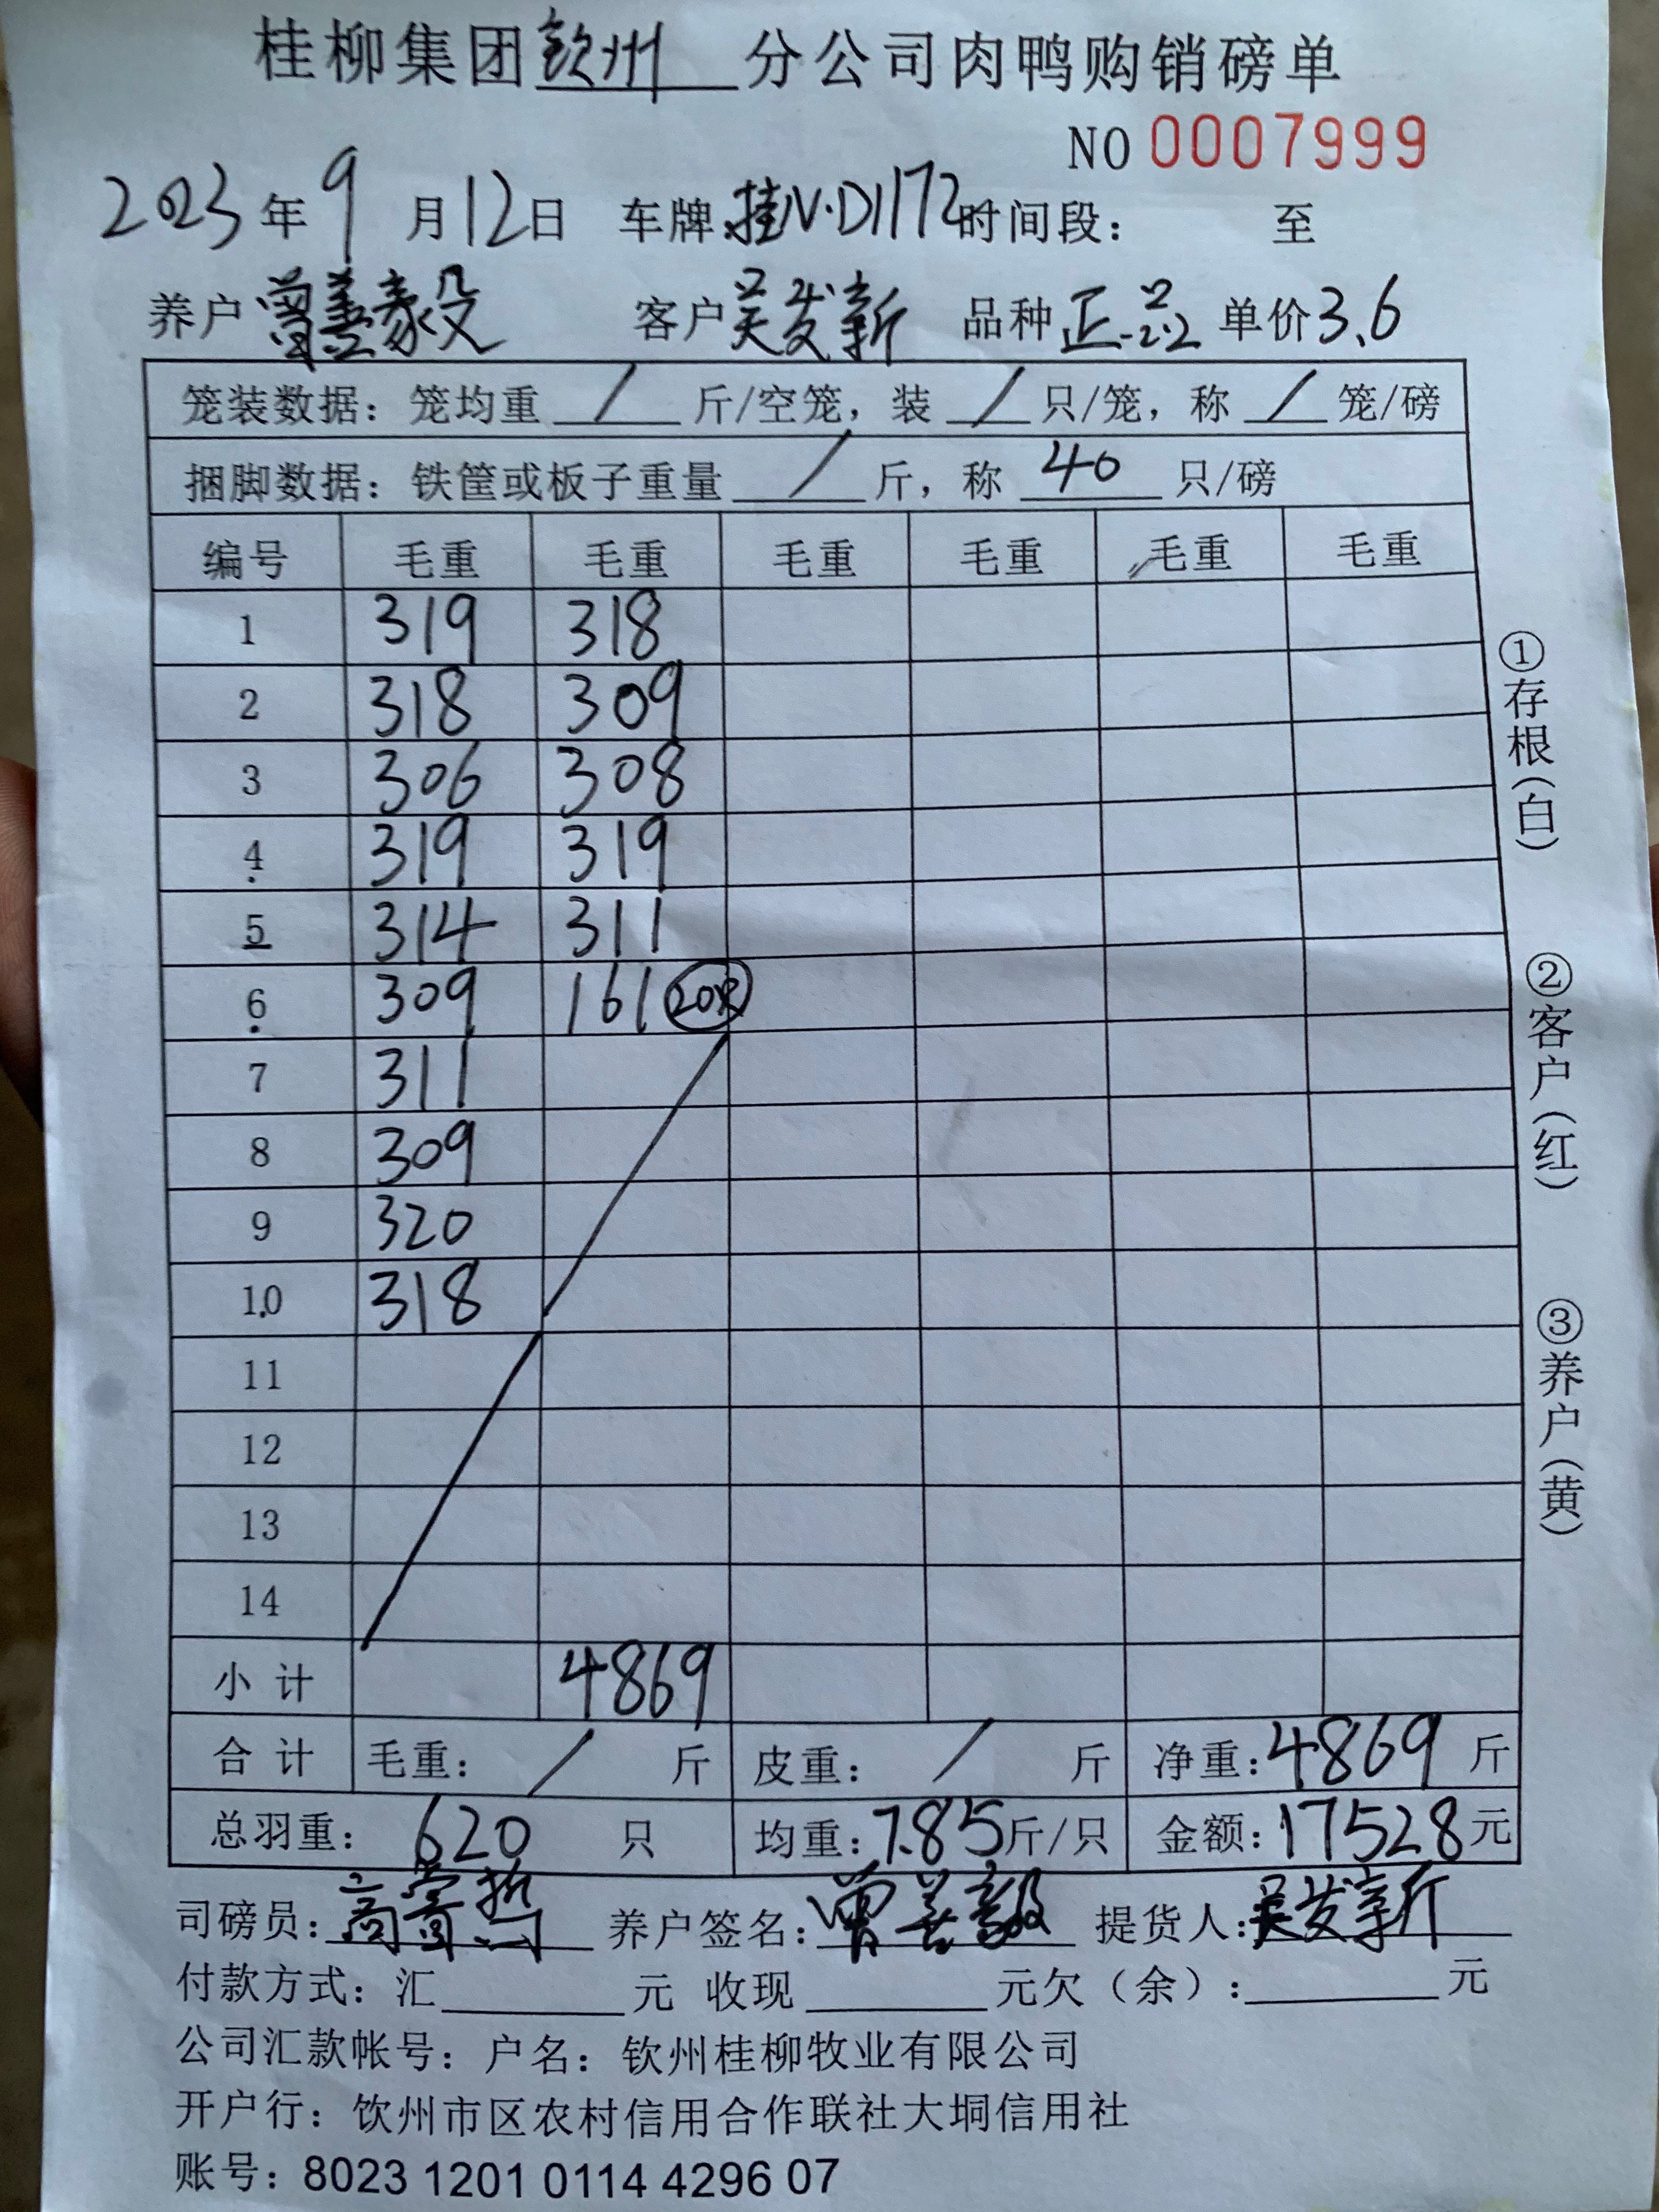 桂柳集团钦州分公司肉鸭购销磅单
NO 0007999
2023年9月12日 车牌:桂N·D1172 时间段: 至
养户 曾善毅 客户 吴发新 品种 正品 单价3.6
笼装数据: 笼均重 / 斤/空笼, 装 / 只/笼, 称 / 笼/磅
捆脚数据: 铁筐或板子重量 / 斤, 称 40 只/磅
编号 毛重 毛重 毛重 毛重 毛重 毛重
1 319 318
2 318 309
3 306 308
4 319 319
5 314 311
6 309 161 20只
7 311
8 309
9 320
10 318
11
12
13
14
小计 4869
合计 毛重: / 斤 皮重: / 斤 净重:4869斤
总羽重: 620 只 均重:7.85斤/只 金额:17528元
司磅员: 养户签名:曾善毅 提货人:吴发新
付款方式: 汇 元 收现 元欠(余): 元
公司汇款帐号: 户名: 钦州桂柳牧业有限公司
开户行: 饮州市区农村信用合作联社大垌信用社
账号: 8023 1201 0114 4296 07
①存根(白)
②客户(红)
③养户(黄)